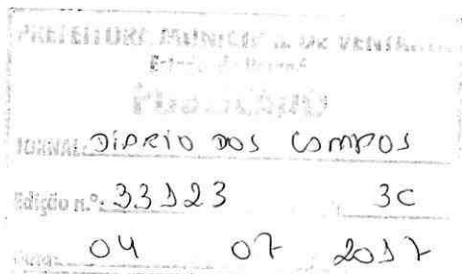 PREFEITURA MUNICIPAL DE VENTANIA
PUBLICADO
JORNAL: DIÁRIO DOS CAMPOS
Edição n.º: 33123 3C
04 07 2017